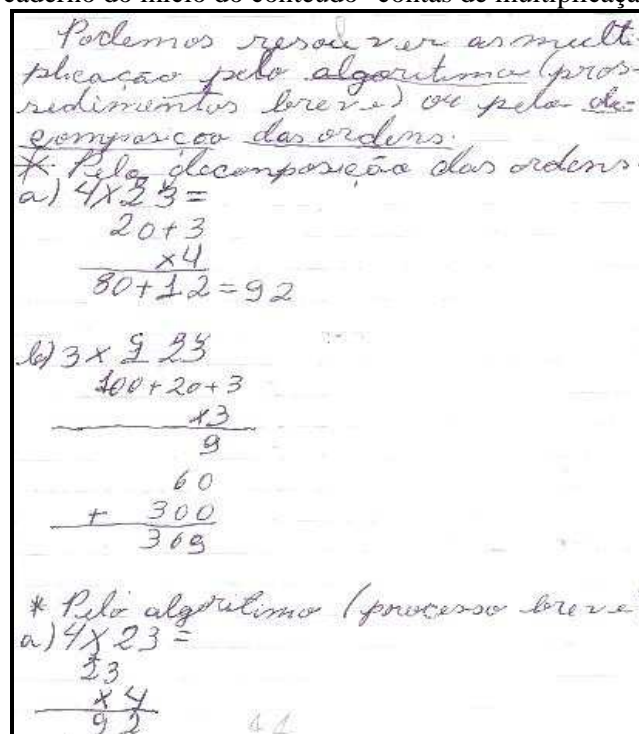 caderno do início do conteúdo "contas de multiplicaçã
Podemos resouver as multi-
plicação pelo algoritimo (pros-
sedimentos breve) ou pela de-
composicoo das ordens.
* Pela decomposição das ordens.
a) 4X23=
20+3
x4
80+12=92
b) 3x 123
100+20+3
x3
9
60
+ 300
369
* Pelo algoritimo (processo breve
a) 4X23=
23
x4
92